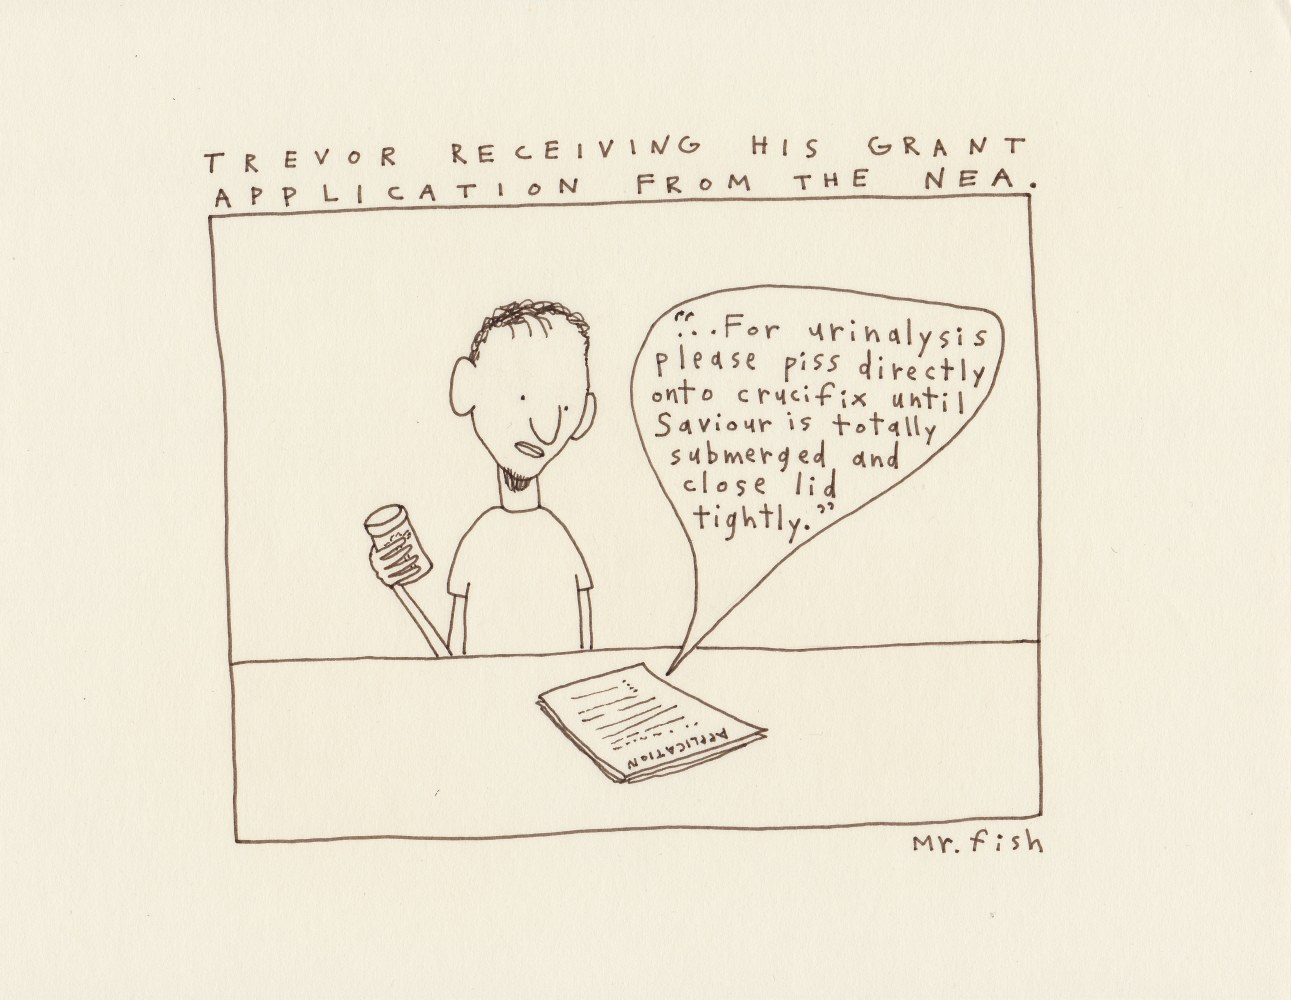 TREVOR RECEIVING HIS GRANT
APPLICATION FROM THE NEA.
"...For urinalysis
please piss directly
onto crucifix until
Saviour is totally
submerged and
close lid
tightly."
APPLICATION
Mr. fish